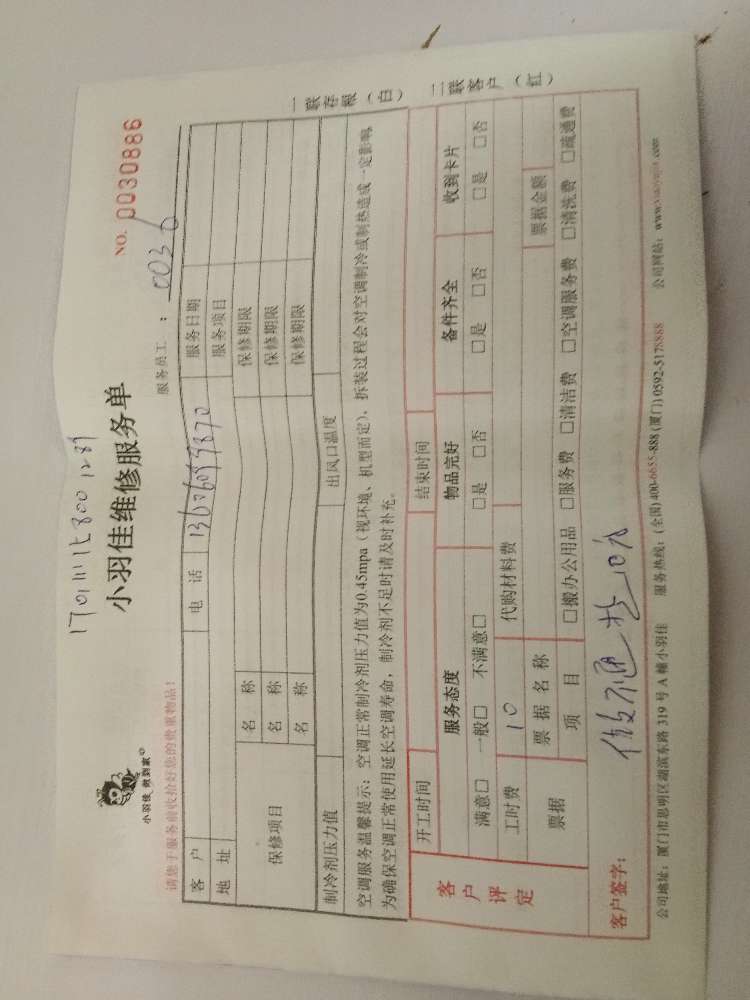 小羽佳 做到家
小羽佳维修服务单
NO. 0030886
请您于服务前收拾好您的贵重物品!
服务员工: 0036
客户 电话 服务日期
地址 服务项目
保修项目 名称 保修期限
名称 保修期限
名称 保修期限
制冷剂压力值 出风口温度
空调服务温馨提示:空调正常制冷剂压力值为0.45mpa(视环境、机型而定),拆装过程会对空调制冷或制热造成一定影响,
为确保空调正常使用延长空调寿命,制冷剂不足时请及时补充。
一联存根(白) 二联客户(红)
客户评定
开工时间 结束时间
服务态度 物品完好 备件齐全 收到卡片
满意□ 一般□ 不满意□ □是 □否 □是 □否 □是 □否
工时费 10 代购材料费
票据 票据名称 票据金额
项目 □搬办公用品 □服务费 □清洁费 □空调服务费 □清洗费 □疏通费
客户签字: 做不通 10元
公司地址:厦门市思明区湖滨东路 319 号 A 幢小羽佳 服务热线:(全国)400-6655-888 (厦门)0592-5178888 公司网站: